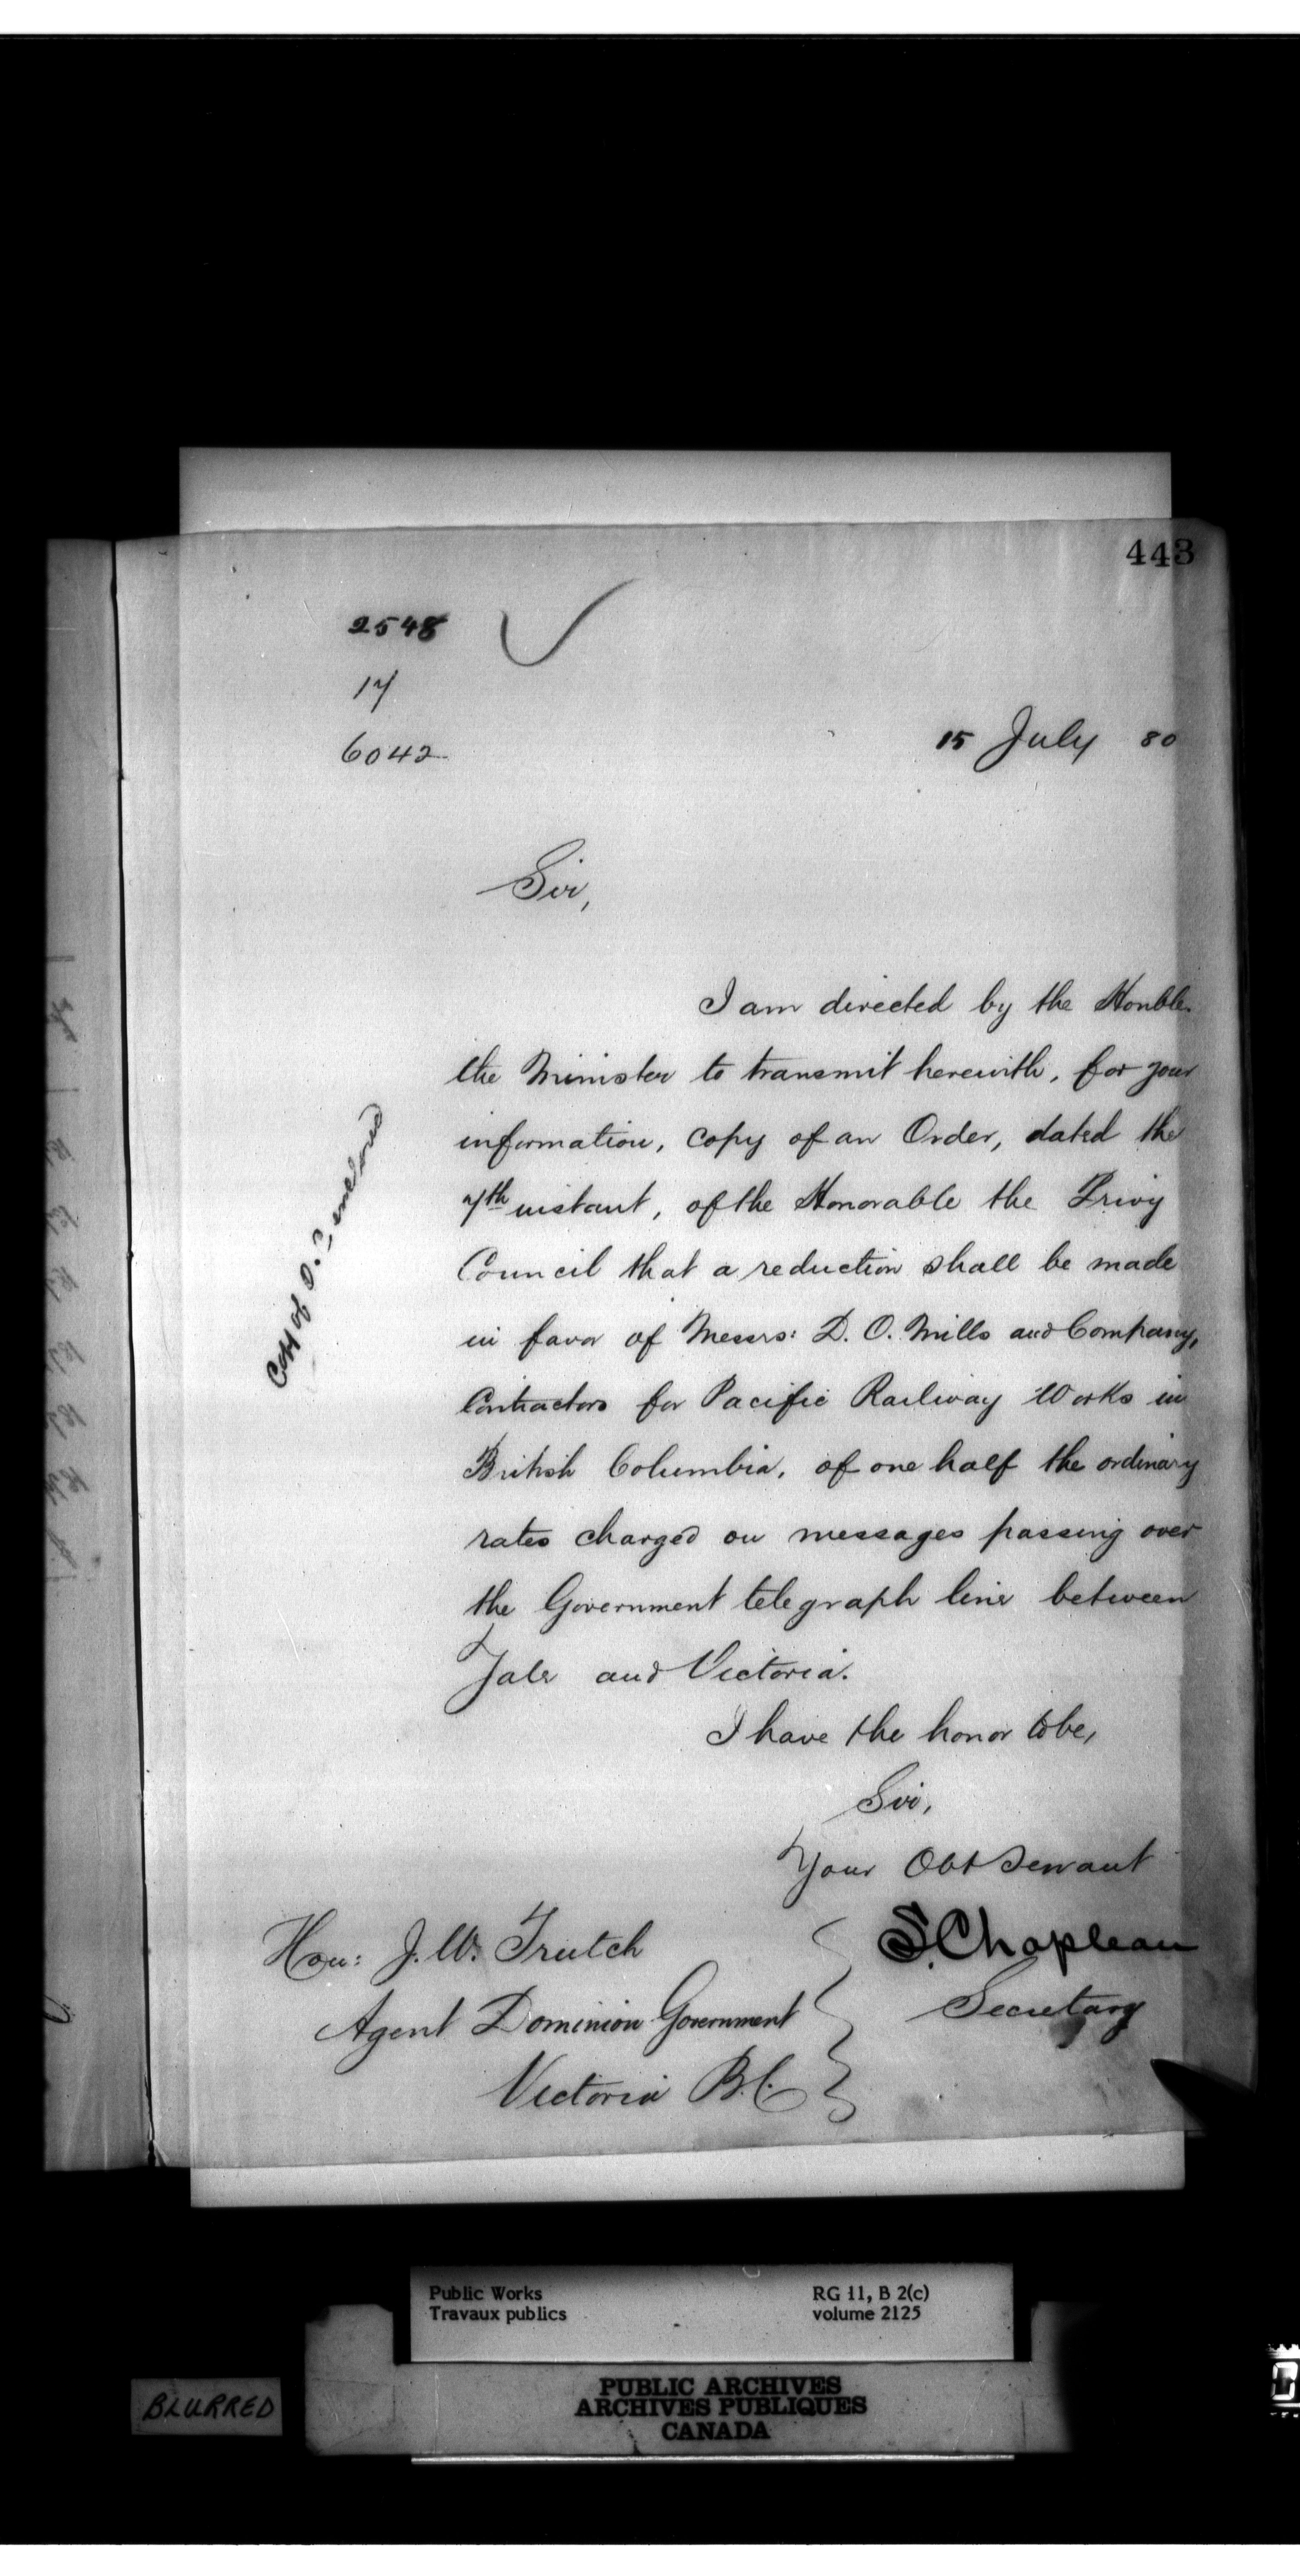 443
2548
17
6042
15 July 80
Sir,
I am directed by the Honble.
the Minister to transmit herewith, for your
information, copy of an Order, dated the
7th instant, of the Honorable the Privy
Council that a reduction shall be made
in favor of Messrs: D. O. Mills and Company,
Contractors for Pacific Railway Works in
British Columbia, of one half the ordinary
rates charged on messages passing over
the Government telegraph line between
Yale and Victoria.
I have the honor to be,
Sir,
Your Obt Servant
S. Chapleau
Secretary
Hon: J. W. Trutch
Agent Dominion Government
Victoria B.C.
of O.C. enclosed
Public Works
Travaux publics
RG 11, B 2(c)
volume 2125
BLURRED
PUBLIC ARCHIVES
ARCHIVES PUBLIQUES
CANADA